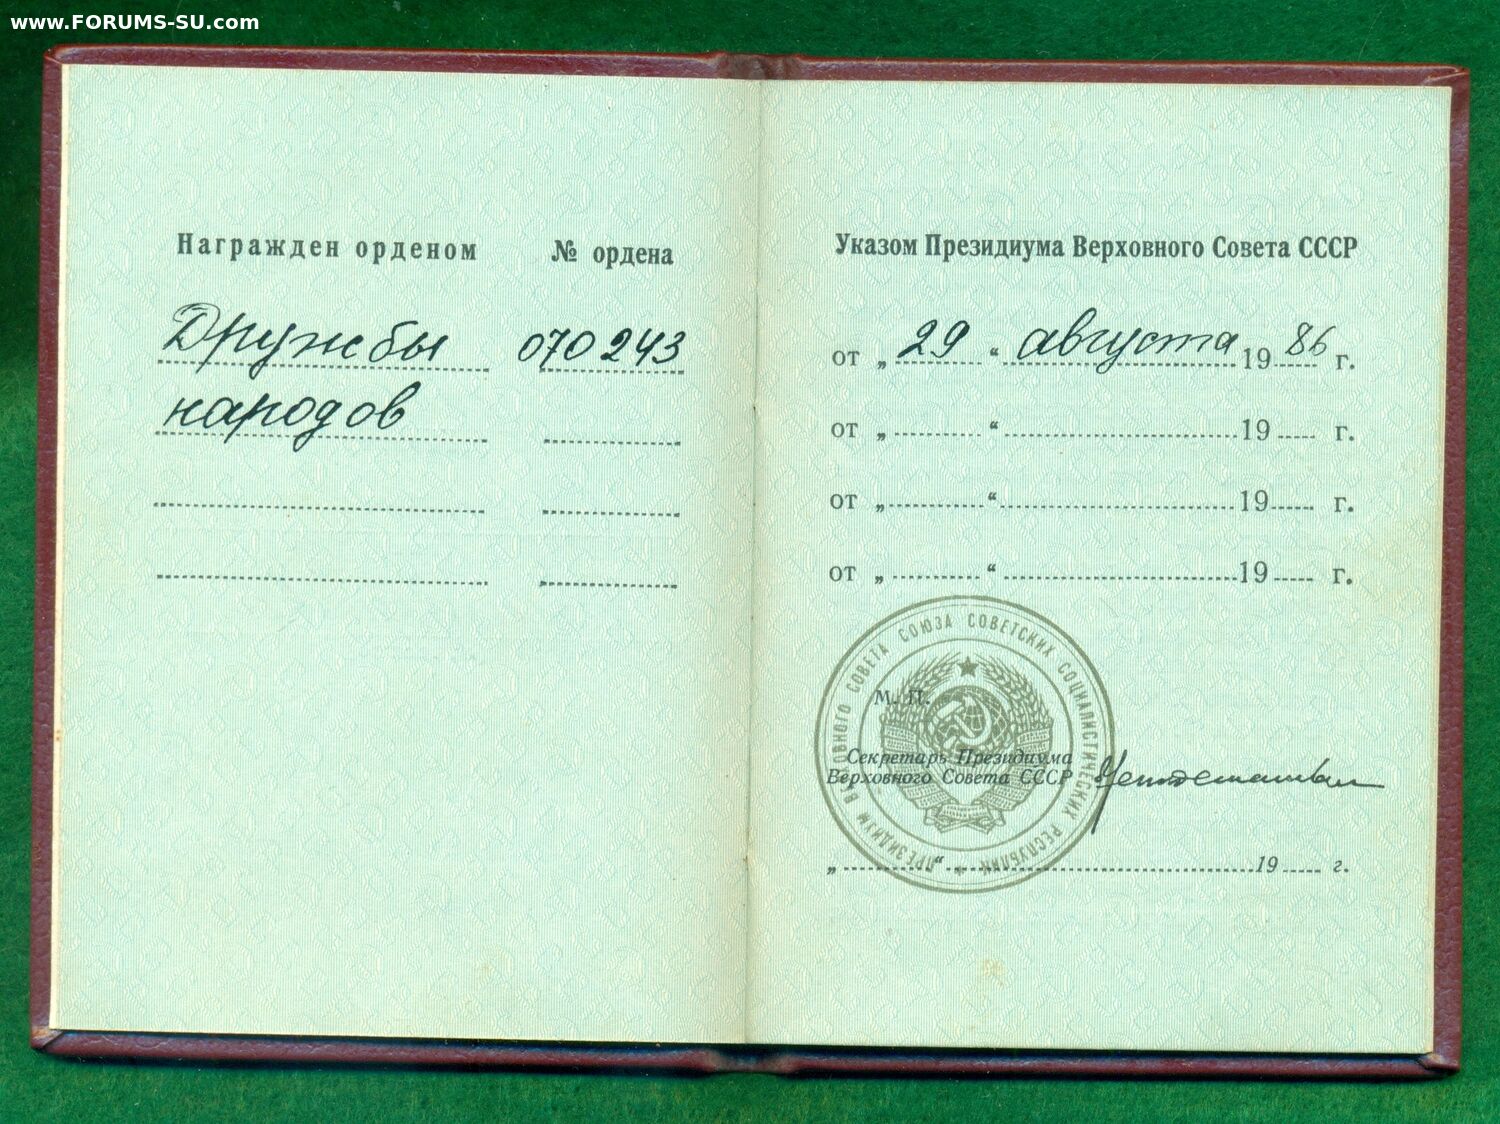 www.FORUMS-SU.com
Награжден орденом № ордена
Дружбы 070243
народов
Указом Президиума Верховного Совета СССР
от „ 29 “ августа 1986 г.
от „ “ 19 г.
от „ “ 19 г.
от „ “ 19 г.
ПРЕЗИДИУМ ВЕРХОВНОГО СОВЕТА СОЮЗА СОВЕТСКИХ СОЦИАЛИСТИЧЕСКИХ РЕСПУБЛИК
М. П.
Секретарь Президиума
Верховного Совета СССР
„ “ 19 г.